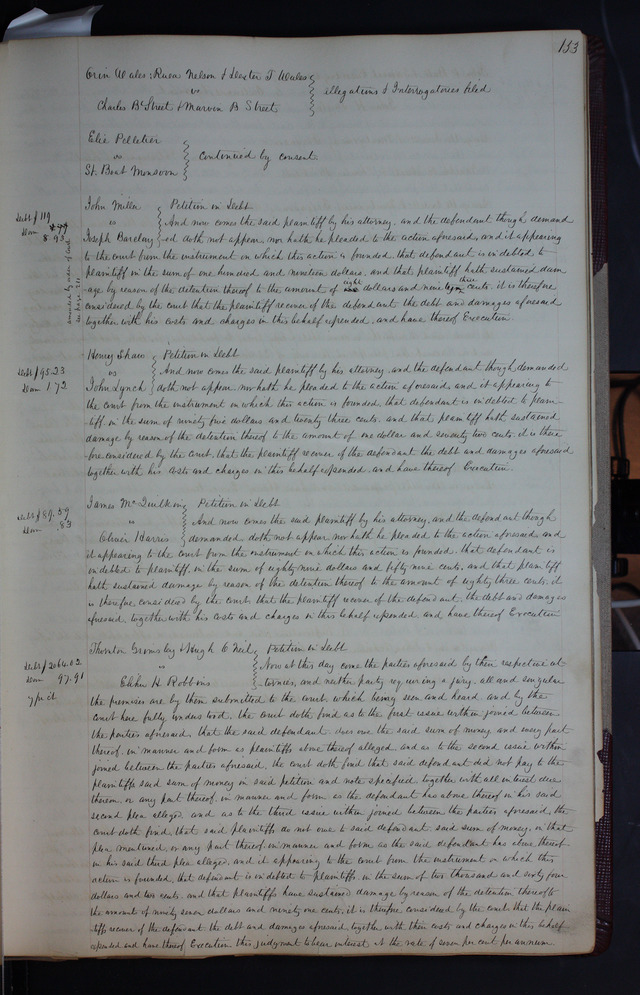 153
Orin Wales, Ruen Nelson & Dexter T Wales
vs
allegations & Interrogatories filed
Charles B. Street & Marvin B Street
Elie Pelletier
vs
continued by consent.
St. Boat Monsoon
Debt $119
Dam 8.93
amended by order of court
John Miller Petition in Debt
vs And now comes the said plaintiff by his attorney, and the defendant though demand
Joseph Barclay -ed doth not appear, nor hath he pleaded to the action aforesaid, and it appearing
to the court from the instrument on which this action is founded, that defendant is indebted to
plaintiff in the sum of one hundred and nineteen dollars, and that plaintiff hath sustained dam
-age by reason of the detention thereof to the amount of eight dollars and ninety three cents, it is therefore
considered by the court that the plaintiff recover of the defendant the debt and damages aforesaid
together with his costs and charges in this behalf expended, and have thereof Execution.
Debt $95.23
Dam 1 72
Henry Shaw Petition in Debt
vs And now comes the said plaintiff by his attorney, and the defendant though demanded
John Lynch doth not appear, nor hath he pleaded to the action aforesaid and it appearing to
the court from the instrument on which this action is founded, that defendant is indebted to plain-
-tiff in the sum of ninety five dollars and twenty three cents, and that plaintiff hath sustained
damage by reason of the detention thereof to the amount of one dollar and seventy two cents. it is there
fore considered by the court, that the plaintiff recover of the defendant the debt and damages aforesaid
together with his costs and charges in this behalf expended, and have thereof Execution.
Debt $89.59
Dam .83
James McQuilkin Petition in Debt
vs And now comes the said plaintiff by his attorney, and the defendant though
Oliver Harris demanded, doth not appear nor hath he pleaded to the action aforesaid and
it appearing to the court from the instrument on which this action is founded, that defendant is
indebted to plaintiff, in the sum of eighty nine dollars and fifty nine cents, and that plaintiff
hath sustained damage by reason of the detention thereof to the amount of eighty three cents. it
is therefore considered by the court that the plaintiff recover of the defendant, the debt and damages
aforesaid, together with his costs and charges in this behalf expended and have thereof Execution
Debt $2064.02
Dam 97.91
7 pr ct
Thornton Grimsley & Hugh C Neil Petition in Debt
vs Now at this day come the parties aforesaid by their respective at
Elihu H. Robbins tornies, and neither party requiring a jury, all and singular
the premises are by them submitted to the court, which being seen and heard, and by the
court here fully understood, the court doth find as to the first issue within joined between
the parties aforesaid, that the said defendant does owe the said sum of money and every part
thereof, in manner and form as plaintiffs above thereof alleged, and as to the second issue within
joined between the parties aforesaid, the court doth find that said defendant did not pay to the
plaintiffs said sum of money in said petition and note specified, together with all interest due
thereon, or any part thereof, in manner and form as the defendant has above thereof in his said
second plea alleged, and as to the third issue within joined between the parties aforesaid, the
court doth find, that said plaintiffs do not owe to said defendant said sum of money, in that
plea mentioned, or any part thereof in manner and form as the said defendant has above thereof
in his said third plea alleged, and it appearing to the court from the instrument on which this
action is founded, that defendant is indebted to plaintiffs in the sum of two thousand and sixty four
dollars and two cents, and that plaintiffs have sustained damage by reason of the detention thereof to
the amount of ninety seven dollars and ninety one cents, it is therefore considered by the court that the plain
tiffs recover of the defendant the debt and damages aforesaid, together with their costs and charges in this behalf
expended and have thereof Execution this judgment to bear interest at the rate of seven per cent per annum.